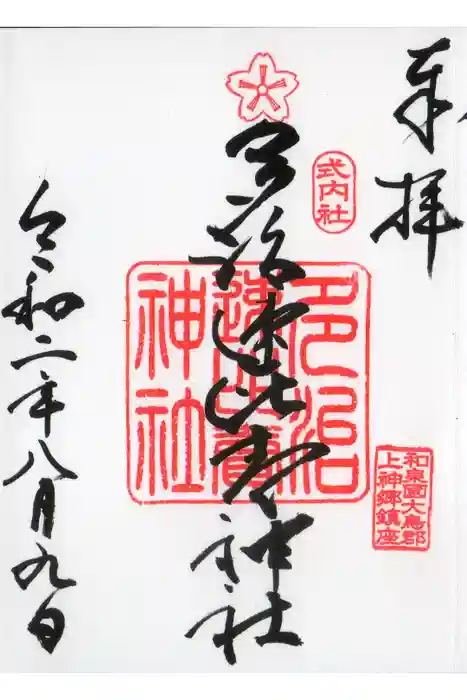 奉拝
式内社
多治速比売神社
多治
速比賣
神社
和泉國大鳥郡
上神郷鎮座
令和二年八月九日